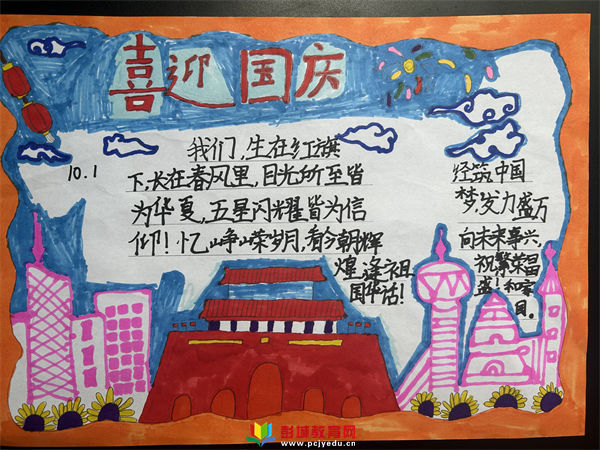 喜迎国庆
10.1
我们,生在红旗
下,长在春风里,目光所至皆
为华夏,五星闪耀皆为信
仰!忆峥嵘岁月,看今朝辉
煌,逢祖
国华诞!
经筑中国
梦,发力盛万
向未来事兴,
祝繁荣昌
盛!和家
园。
彭城教育网
www.pcjyedu.cn